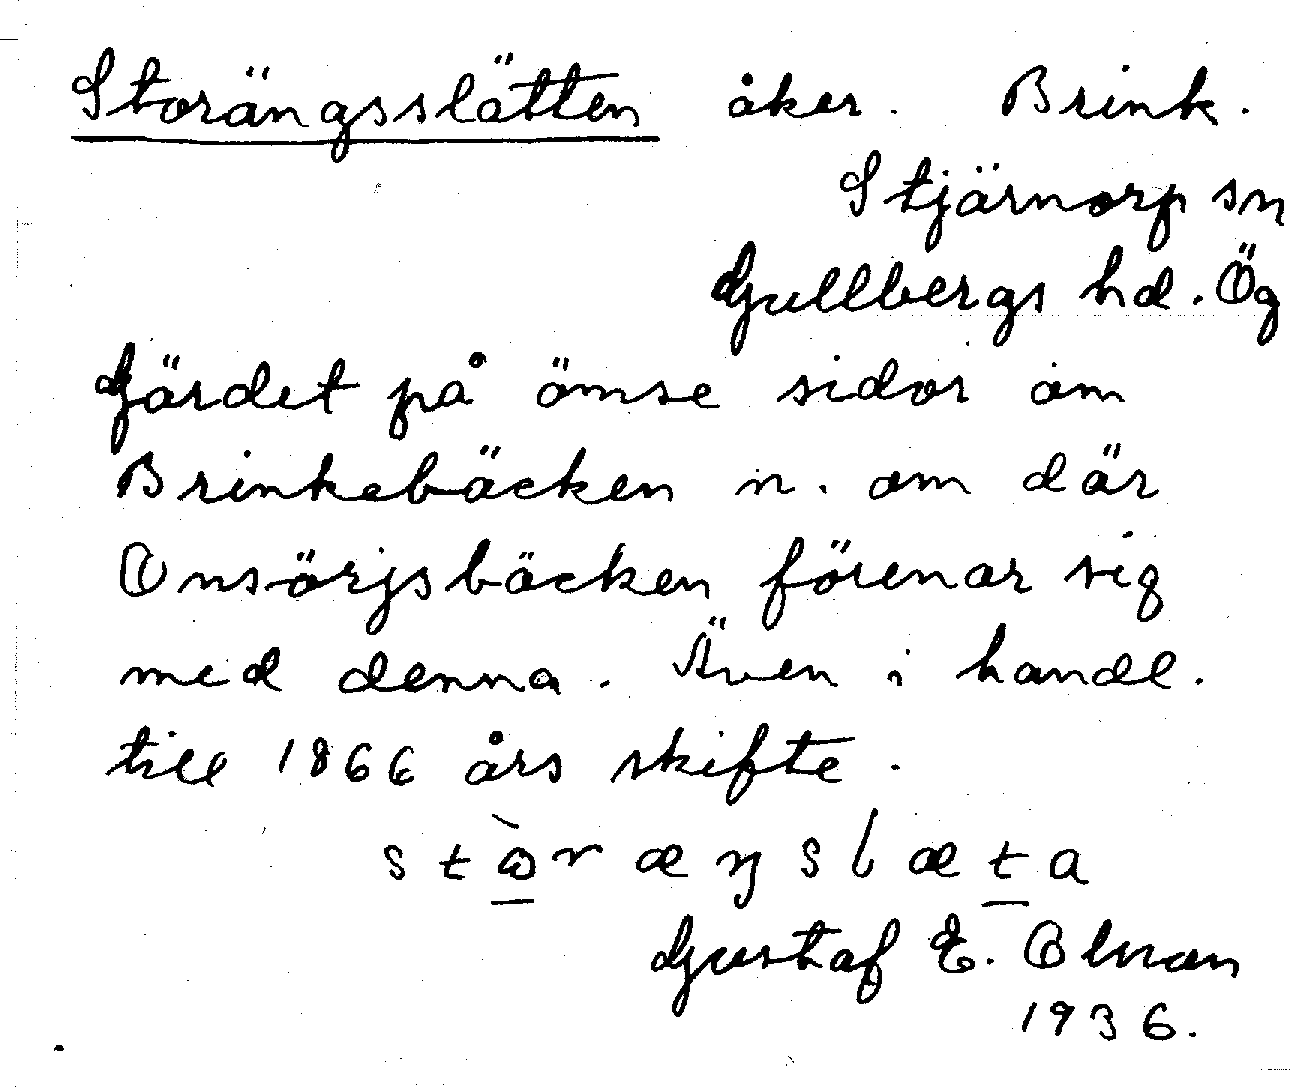 Storängsslätten åker. Brink.
Stjärnorp sn
Gullbergs hd. Ög
Gärdet på ömse sidor om
Brinkebäcken n. om där
Onsörjsbäcken förenar sig
med denna. Även i handl.
till 1866 års skifte.
stɷ̀ræŋslæta
Gustaf E. Olman
1936.